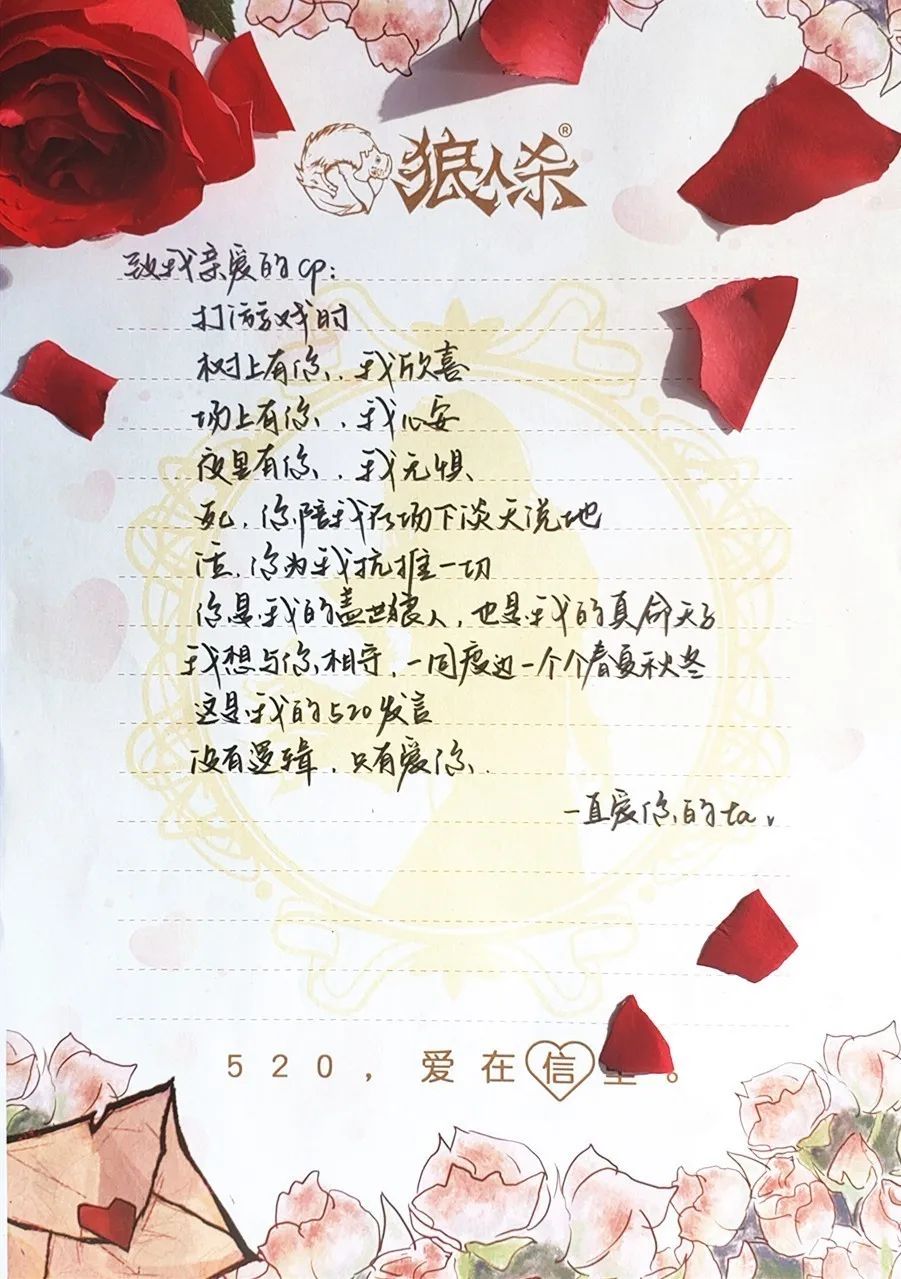 狼人杀®
致我亲爱的cp:
打游戏时
树上有你,我欣喜
场上有你,我心安
夜里有你,我无惧
死,你陪我在场下谈天说地
活,你为我抗推一切
你是我的盖世狼人,也是我的真命天子
我想与你相守,一同度过一个个春夏秋冬
这是我的520发言
没有逻辑,只有爱你.
一直爱你的ta、
520,爱在信。